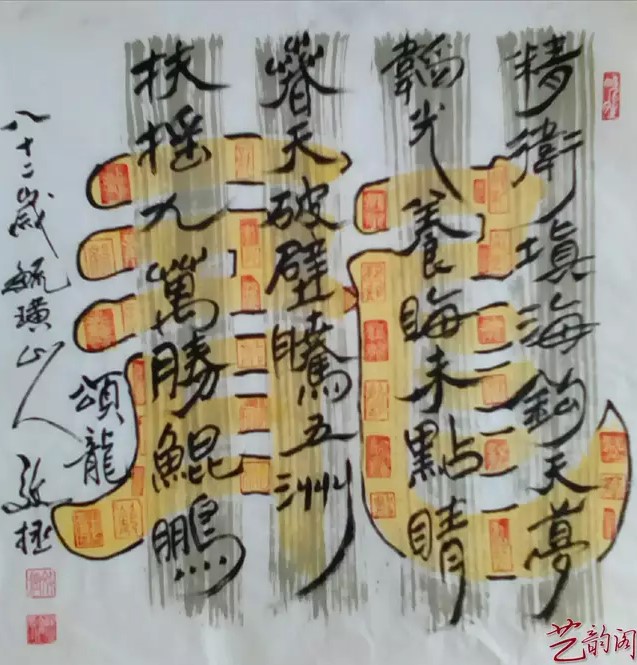 精衛填海鈞天夢
韜光養晦未點睛
天破壁騰五洲
扶摇九萬勝鯤鵬
頌龍
八十二歲毓璜山人
艺韵阁